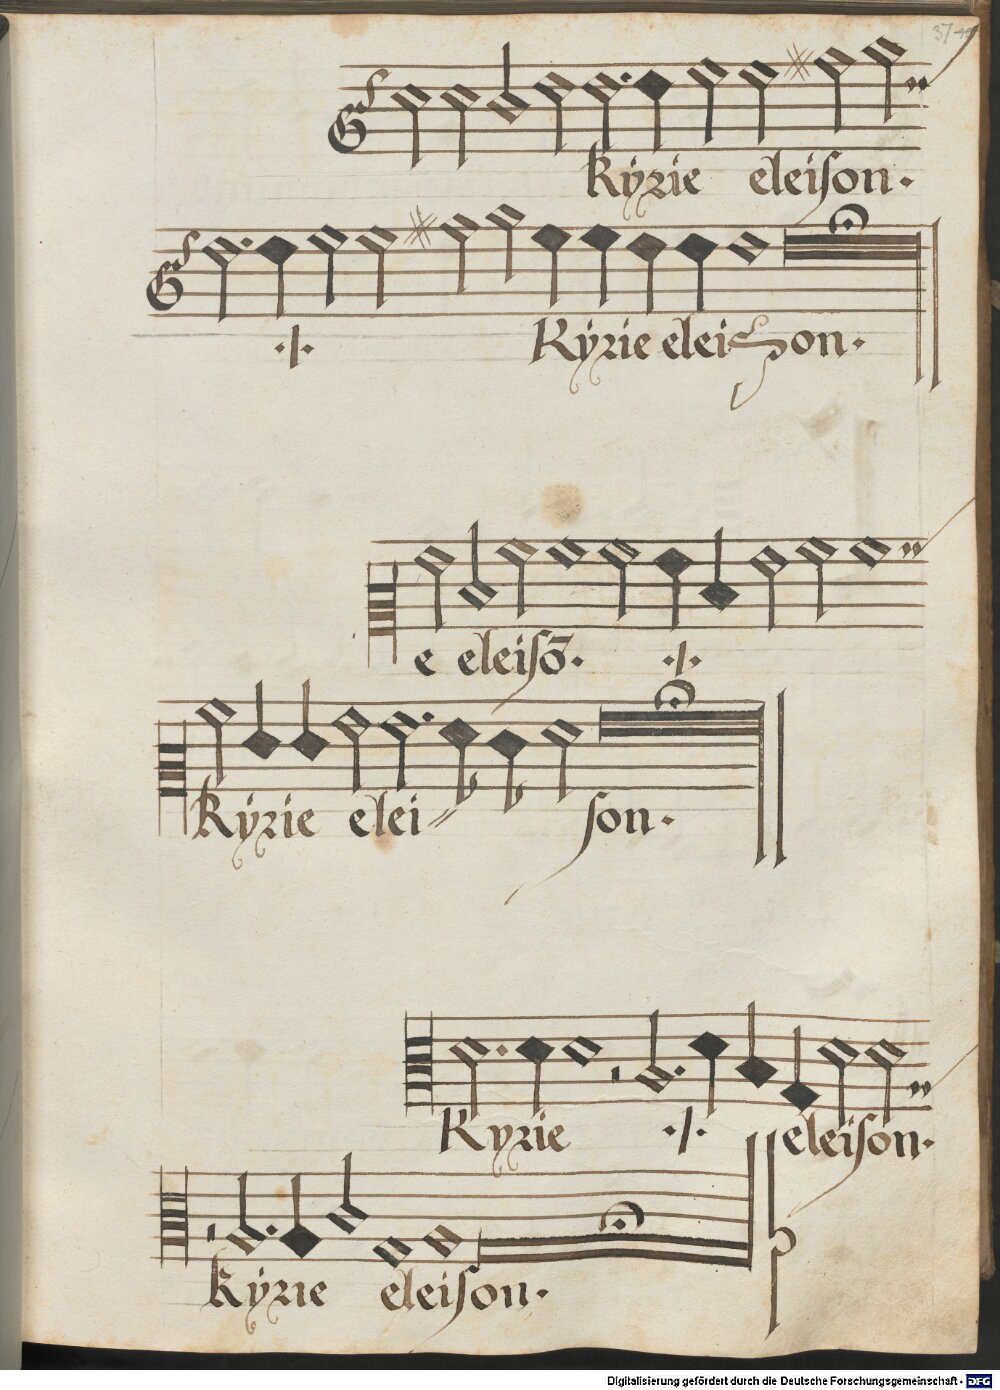 Kyrie eleison.
./. Kyrie eleison.
e eleisō. ./.
Kyrie elei son.
Kyrie ./. eleison.
Kyrie eleison.
Digitalisierung gefördert durch die Deutsche Forschungsgemeinschaft - DFG